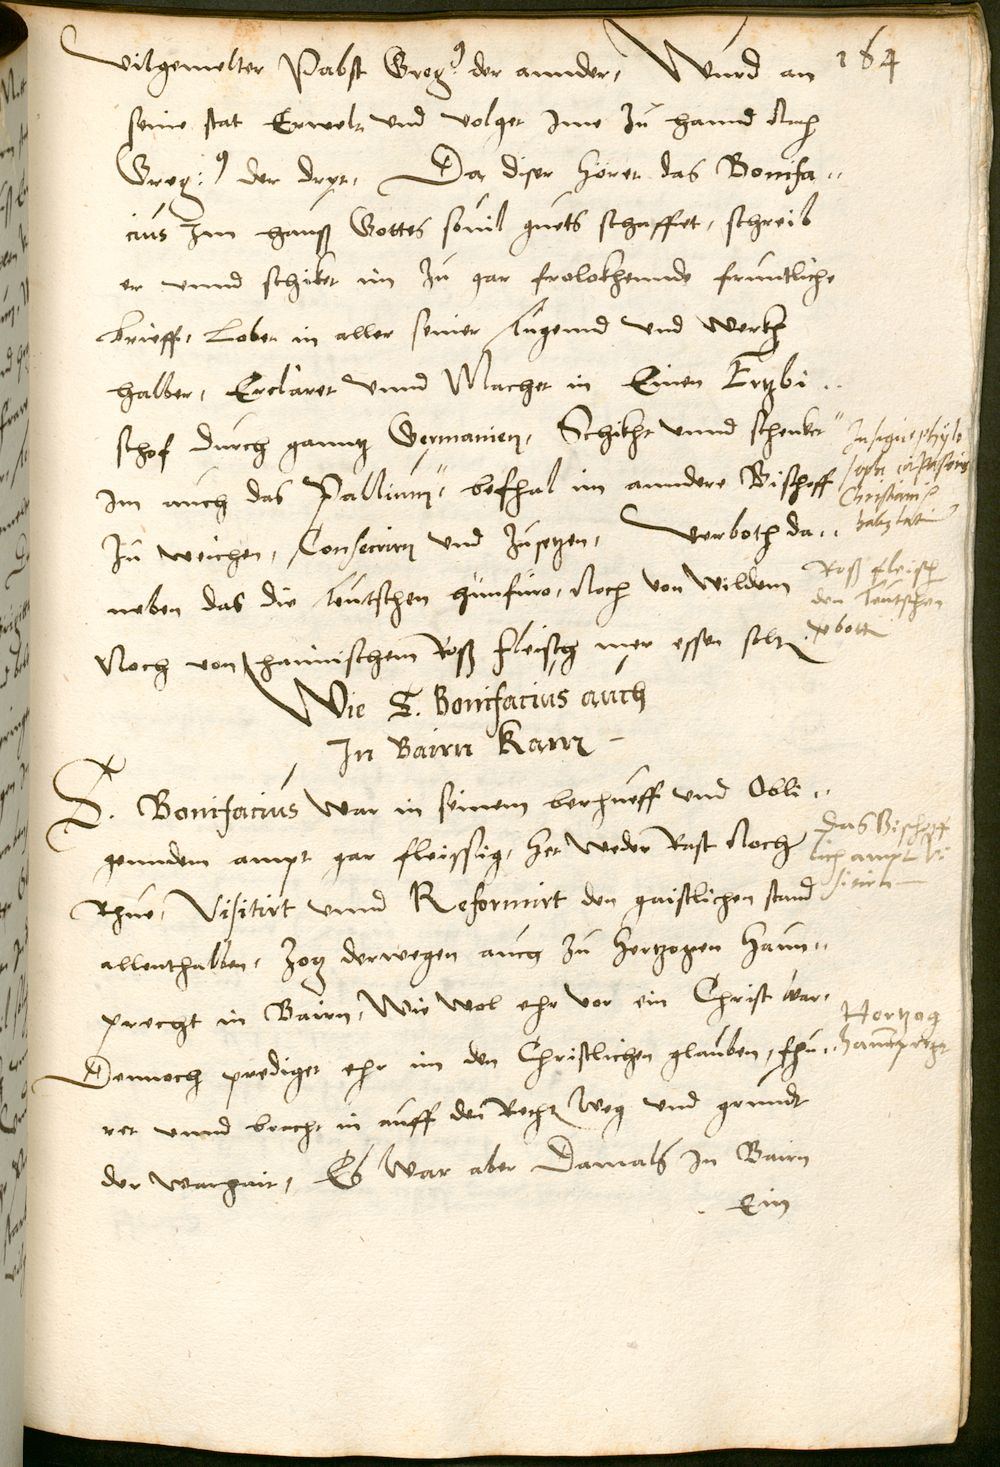 184
vilgemelter Pabst Greg⁹: der annder, Wurd an
seine stat Erwelt und volget Ime Zu hannd Nach
Greg:⁹ der dryt, Da diser höret das Bonifa..
cius Im hauß Gottes sovil guets schaffet, schreib
er unnd schiket im Zu gar frolokhennde fruntliche
brieff, Lobet in aller seiner tugennd und werkh
halber, Ercläret unnd Machet in Einen Ertzbi..
schof durch ganntz Germanien, Schikht unnd schenket"
Im auch das Pallium", befhal im anndere Bischoff
Zu weichen, Consecrirn und Zusetzen, verboth da..
neben das die teutschen hünfüro, Noch von Wildem
Noch von haimischem Roß fleisch mer essen solt
Insigne
Christian
Roß fleisch
den teutschen
Wie S. Bonifacius auch
In Bairn Kam
S. Bonifacius war in seinem berhueff und Obli..
gennden ampt gar fleissig, Het weder Rast Noch
Rhue, Visitirt unnd Reformirt den gaistlichen stand
allenthalben, Zog derwegen auch Zu Hertzogen Haun..
precht in Bairn, Wie wol ehr vor ein Christ war,
Dennoch prediget ehr im den Christlichen glauben, fhü..
ret unnd bracht in auff den Recht weg und grundt
der warhait, Es war aber Damals In Bairn
Das Bischoff
lich ampt vi
sitirt
Hertzog
Haunprecht
Ein